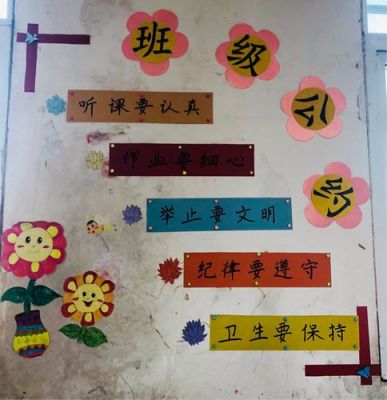 班级公约
听课要认真
作业要细心
举止要文明
纪律要遵守
卫生要保持